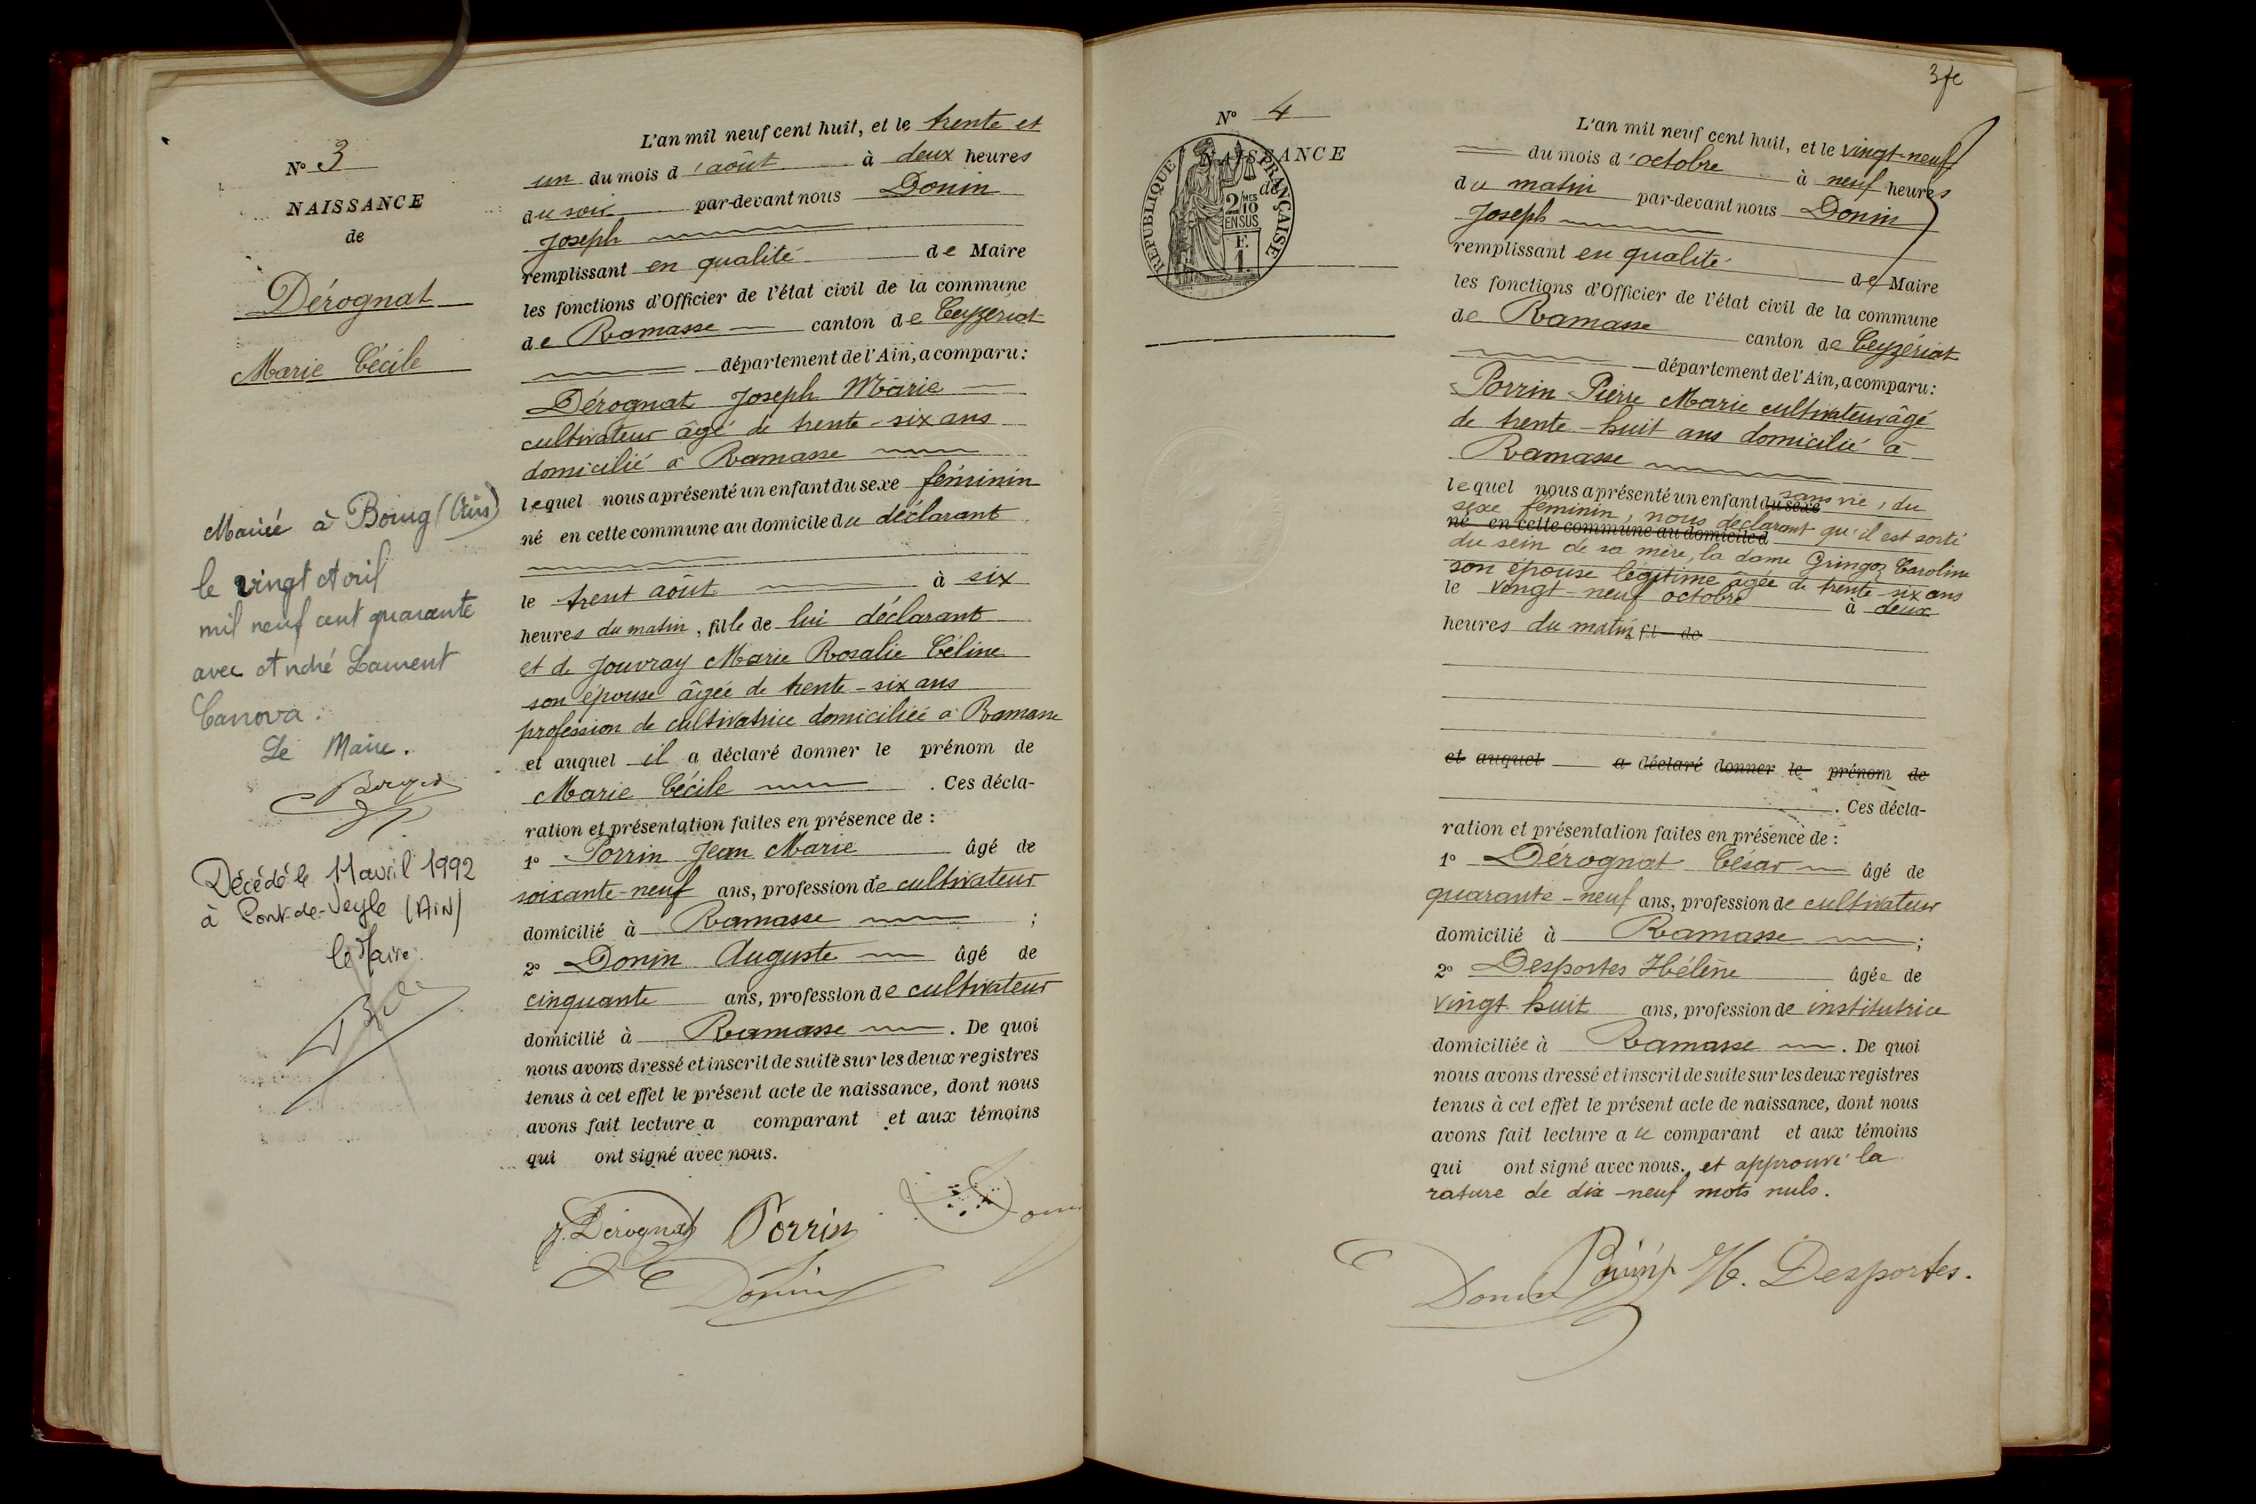 N° 3
NAISSANCE
de
Dérognat
Marie Cécile
Mariée à Bourg (Ain)
le vingt Avril
mil neuf cent quarante
avec André Laurent
Canova.
Le Maire.
Décédée le 11 avril 1992
à Pont-de-Veyle (AIN)
le Maire.
L'an mil neuf cent huit, et le trente et
un du mois d'août à deux heures
du soir par-devant nous Donin
Joseph
remplissant en qualité de Maire
les fonctions d'Officier de l'état civil de la commune
de Ramasse canton de Ceyzériat
département de l'Ain, a comparu:
Dérognat Joseph Marie
cultivateur âgé de trente-six ans
domicilié à Ramasse
lequel nous a présenté un enfant du sexe féminin
né en cette commune au domicile du déclarant
le trent août à six
heures du matin, fille de lui déclarant
et de Jouvray Marie Rosalie Céline
son épouse âgée de trente-six ans
profession de cultivatrice domiciliée à Ramasse
et auquel il a déclaré donner le prénom de
Marie Cécile . Ces décla-
ration et présentation faites en présence de :
1° Porrin Jean Marie âgé de
soixante-neuf ans, profession de cultivateur
domicilié à Ramasse ;
2° Donin Auguste âgé de
cinquante ans, profession de cultivateur
domicilié à Ramasse . De quoi
nous avons dressé et inscrit de suite sur les deux registres
tenus à cet effet le présent acte de naissance, dont nous
avons fait lecture a comparant et aux témoins
qui ont signé avec nous.
J. Dérognat Porrin
Donin
3 fc
N° 4
NAISSANCE
de
RÉPUBLIQUE FRANÇAISE
2/10 MES
EN SUS
F.
1.
L'an mil neuf cent huit, et le vingt-neuf
du mois d'octobre à neuf heures
du matin par-devant nous Donin
Joseph
remplissant en qualité de Maire
les fonctions d'Officier de l'état civil de la commune
de Ramasse canton de Ceyzériat
département de l'Ain, a comparu:
Porrin Pierre Marie cultivateur âgé
de trente-huit ans domicilié à
Ramasse
lequel nous a présenté un enfant du sexe sans vie, du
sexe féminin, nous déclarant qu'il est sorti
né en cette commune au domicile d
du sein de sa mère, la dame Gringoz Caroline
son épouse légitime âgée de trente-six ans
le vingt-neuf octobre à deux
heures du matin fi de
et auquel a déclaré donner le prénom de
. Ces décla-
ration et présentation faites en présence de :
1° Dérognat César âgé de
quarante-neuf ans, profession de cultivateur
domicilié à Ramasse ;
2° Desportes Hélène âgée de
vingt huit ans, profession de institutrice
domiciliée à Ramasse . De quoi
nous avons dressé et inscrit de suite sur les deux registres
tenus à cet effet le présent acte de naissance, dont nous
avons fait lecture au comparant et aux témoins
qui ont signé avec nous. et approuvé la
rature de dix-neuf mots nuls.
Donin H. Desportes.